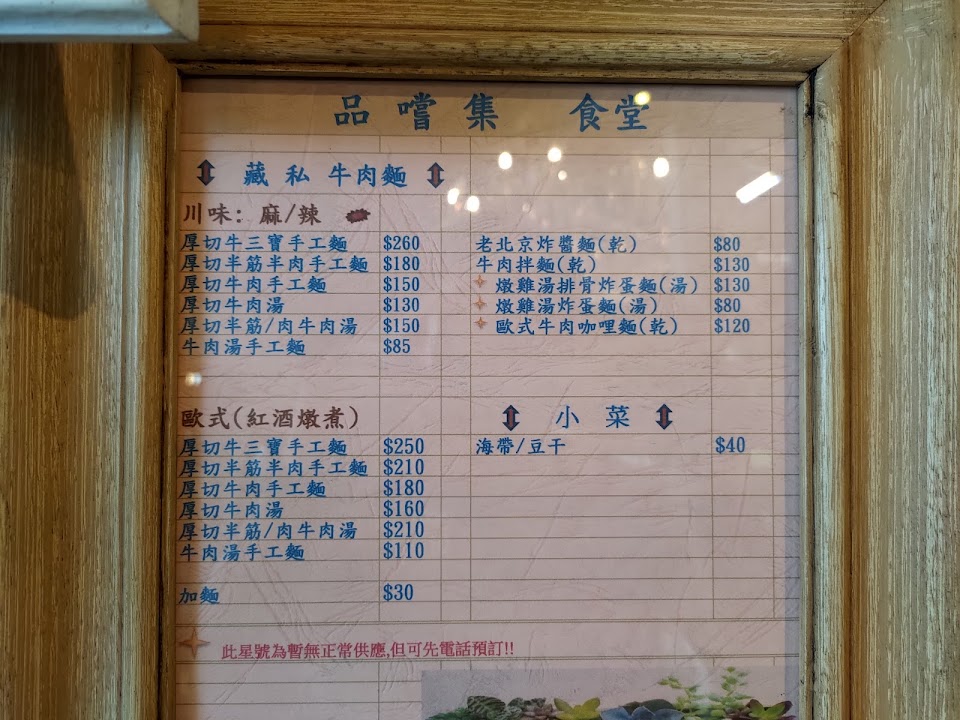 品嚐集 食堂
藏私 牛肉麵
川味: 麻/辣
厚切牛三寶手工麵 $260
厚切半筋半肉手工麵 $180
厚切牛肉手工麵 $150
厚切牛肉湯 $130
厚切半筋/肉牛肉湯 $150
牛肉湯手工麵 $85
歐式(紅酒燉煮)
厚切牛三寶手工麵 $250
厚切半筋半肉手工麵 $210
厚切牛肉手工麵 $180
厚切牛肉湯 $160
厚切半筋/肉牛肉湯 $210
牛肉湯手工麵 $110
加麵 $30
老北京炸醬麵(乾) $80
牛肉拌麵(乾) $130
燉雞湯排骨炸蛋麵(湯) $130
燉雞湯炸蛋麵(湯) $80
歐式牛肉咖哩麵(乾) $120
小菜
海帶/豆干 $40
此星號為暫無正常供應,但可先電話預訂!!